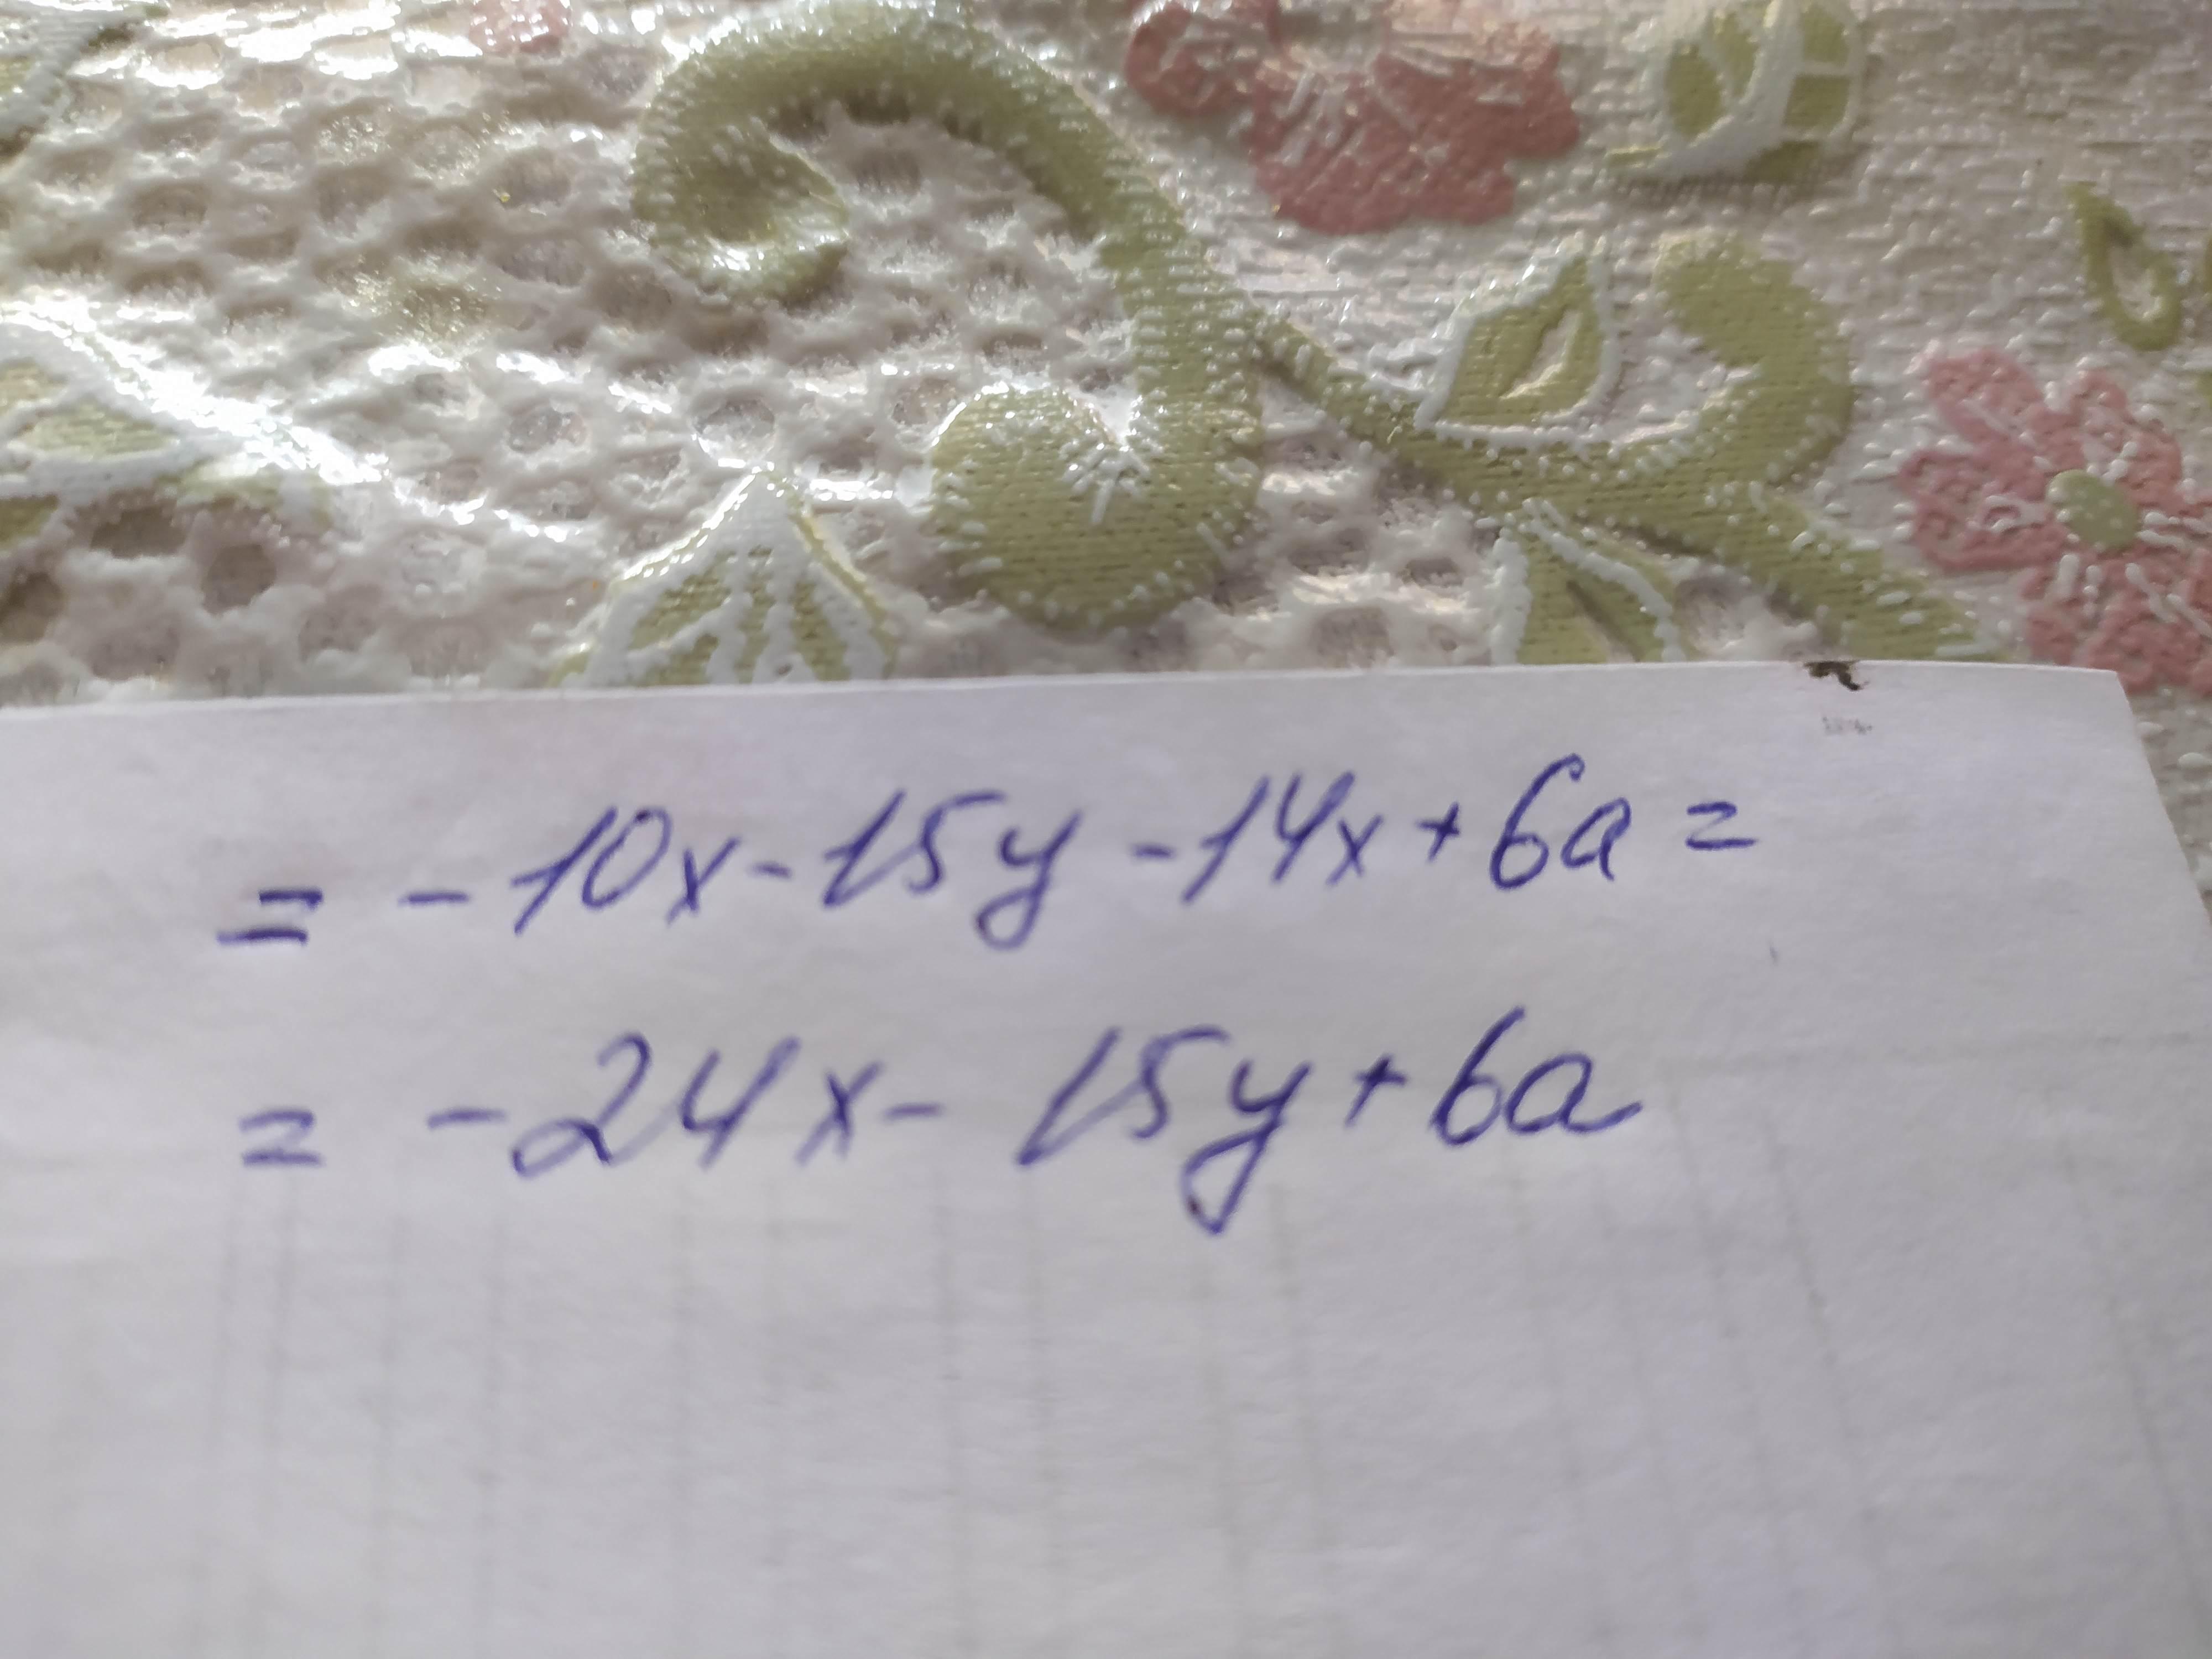 = - 10x - 15y - 14x + 6a =
= - 24x - 15y + 6a